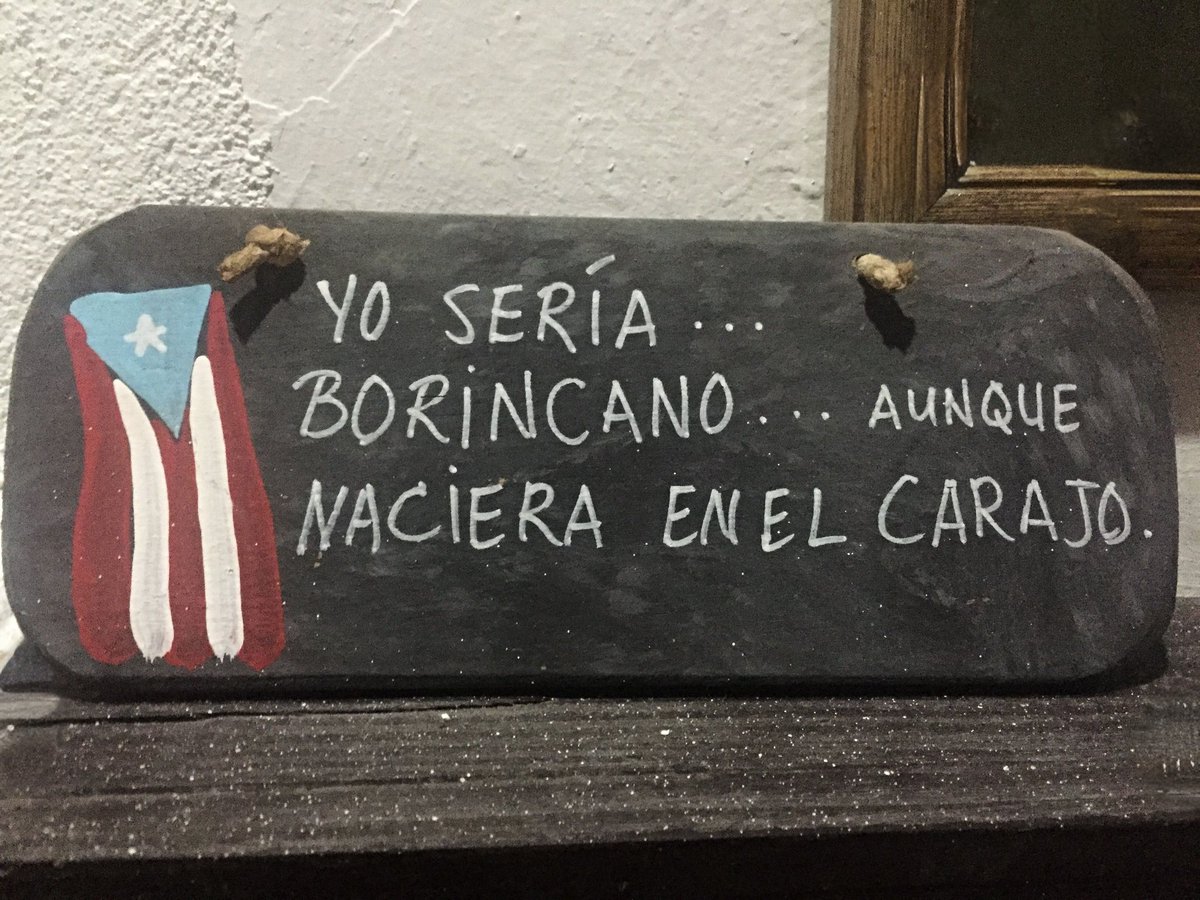 YO SERÍA ...
BORINCANO... AUNQUE
NACIERA EN EL CARAJO.